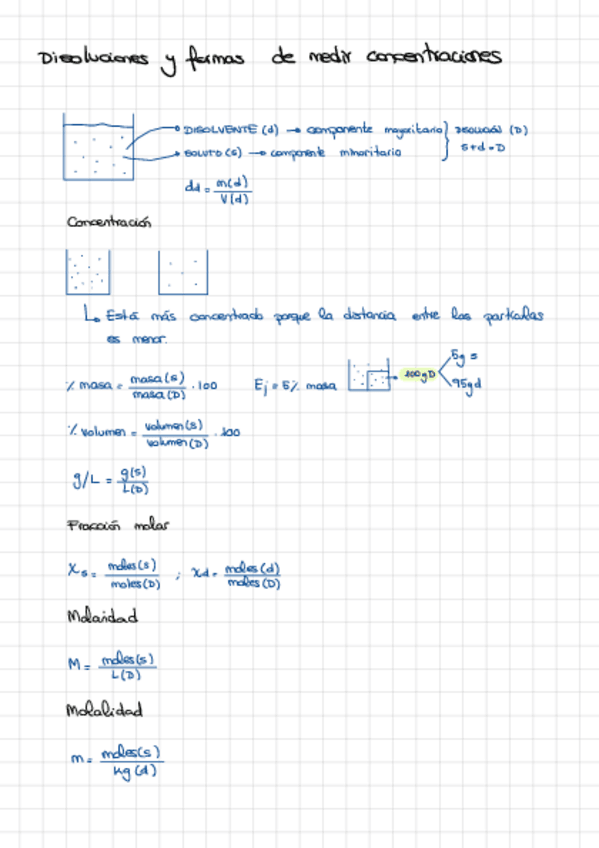 Disoluciones y formas de medir concentraciones
DISOLVENTE (d) → componente mayoritario } DISOLUCIÓN (D)
SOLUTO (s) → componente minoritario } s+d=D
dd = m(d) / V(d)
Concentración
↳ Está más concentrado porque la distancia entre las partículas
es menor.
% masa = masa(s) / masa(D) · 100 Ej = 5% masa → 100gD < 5g s 95g d
% volumen = volumen(s) / volumen(D) · 100
g/L = g(s) / L(D)
Fracción molar
Xs = moles(s) / moles(D) ; Xd = moles(d) / moles(D)
Molaridad
M = moles(s) / L(D)
Molalidad
m = moles(s) / kg(d)